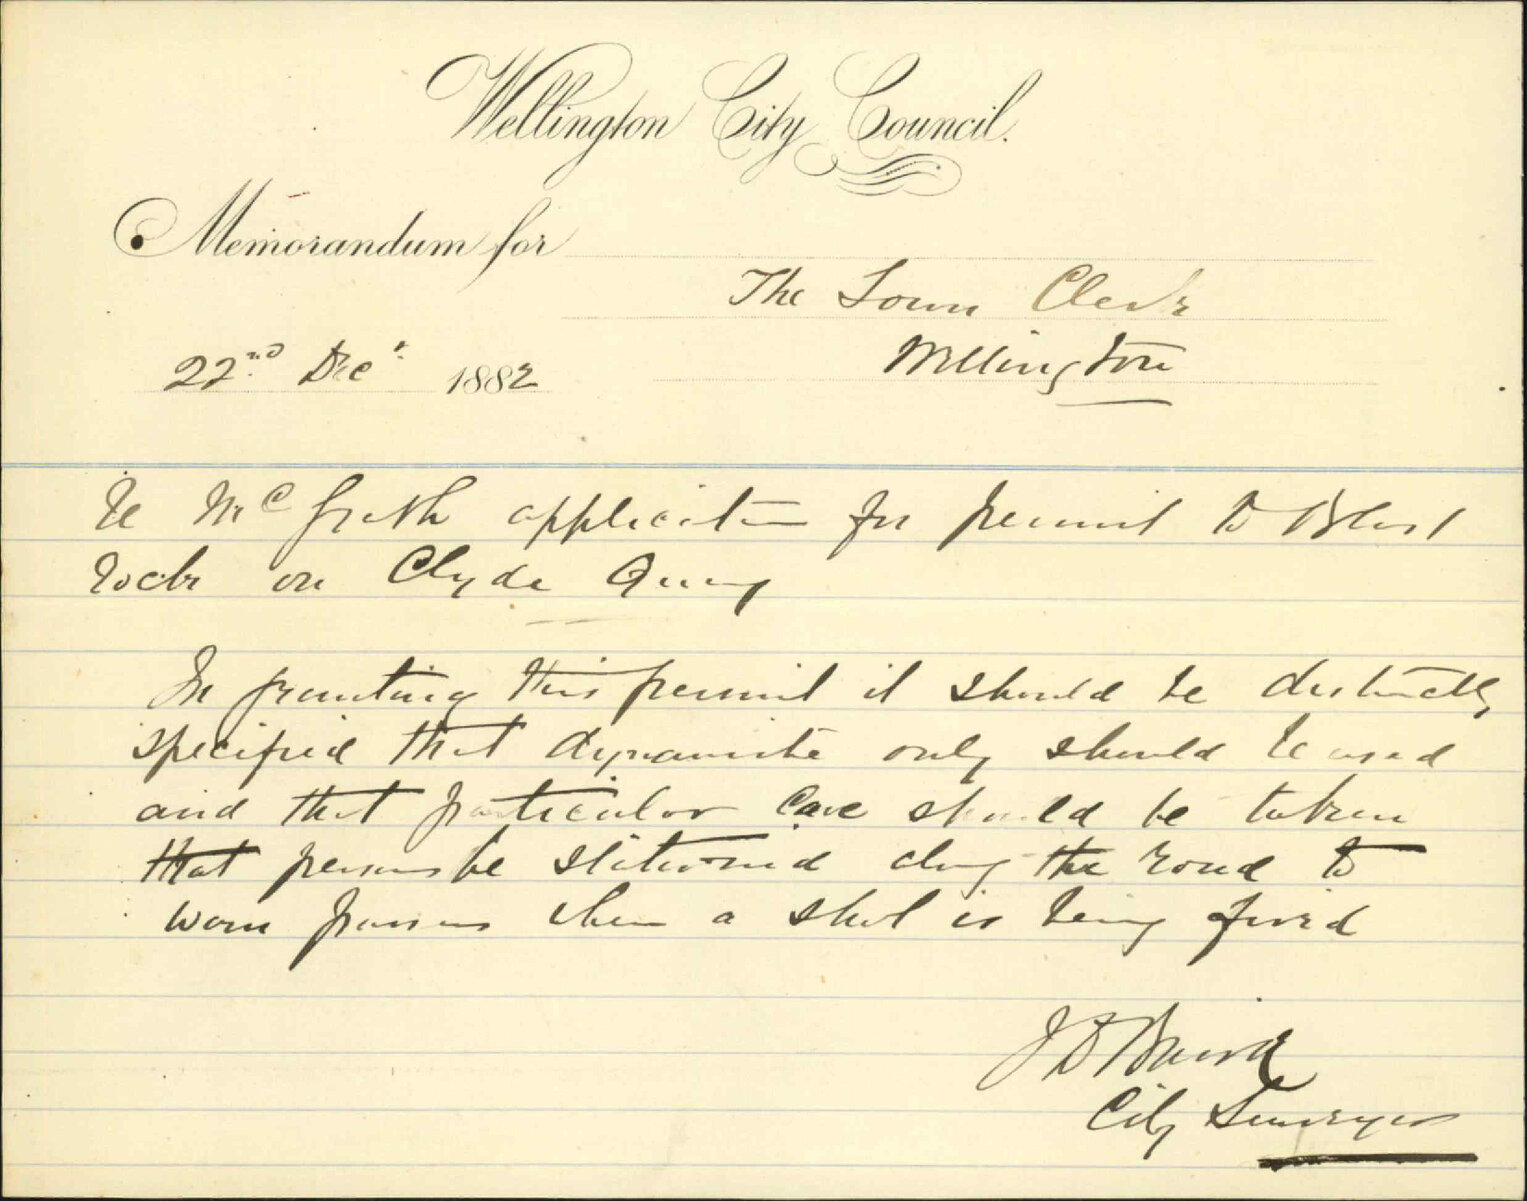 Wellington City Council.
Memorandum for
The Town Clerk
22nd Decr 1882
Wellington
Re McGrath application for permit to Blast
Rock on Clyde Quay
In granting this permit it should be distinctly
specified that dynamite only should be used
and that particular care should be taken
that persons be stationed along the road to
warn persons when a shot is being fired
J D Baird
City Surveyor